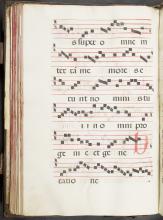 s super o mne m
ter ra me mor e se
runt no mini s tu
i i n o mini pro
ge ni e et gene
ratio ne